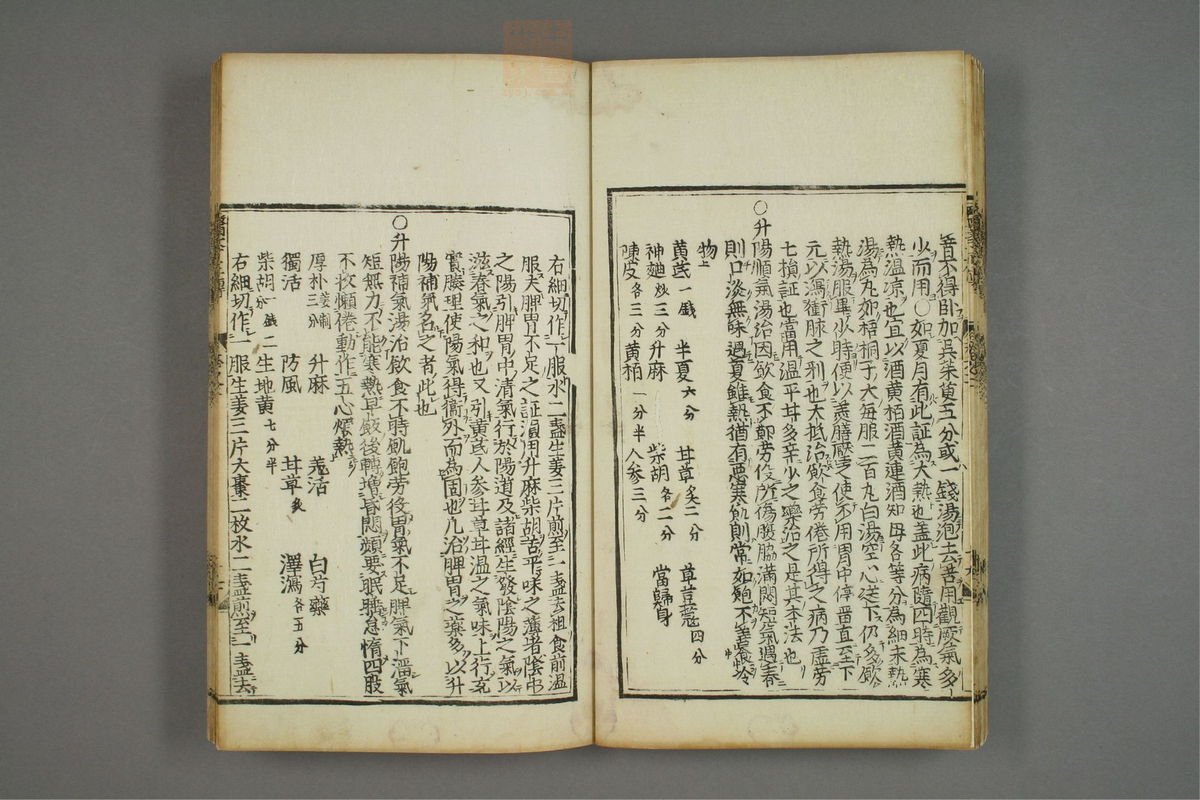 至不得卧加吳茱萸五分或一錢湯泡去苦用觀厥氣多
少而用○如夏月有此証為大熱也盖此病隨四時為寒
熱温凉也宜以酒黄栢酒黄連酒知母各等分為細末熱
湯為丸如梧桐子大毎服二百丸白湯空心送下仍多飲
熱湯服畢少時便以羙膳壓之使不用胃中停畱直至下
元以瀉衝脉之邪也大抵治飲食劳倦所得之病乃虚劳
七損証也當用温平甘多辛少之藥治之是其本法也
○升陽順氣湯治因飲食不節劳役所傷腹脇滿悶短氣遇春
則口淡無味遇夏雖熱猶有惡寒飢則常如飽不喜食冷
物
黄芪一錢 半夏六分 甘草炙二分 草荳蔲四分
神麯炒三分 升麻 柴胡各二分 當歸身
陳皮各三分 黄栢一分半 人参三分
右細切作一服水二盞生姜三片煎至一盞去柤食前温
服夫脾胃不足之証湏用升麻柴胡苦平味之薄者陰中
之陽引脾胃中清氣行於陽道及諸經生發陰陽之氣以
滋春氣之和也又引黄芪人参甘草甘温之氣味上行充
實腠理使陽氣得衞外而為固也凡治脾胃之藥多以升
陽補氣名之者此也
○升陽補氣湯治飲食不時飢飽劳役胃氣不足脾氣下溜氣
短無力不能寒熱早飯後轉增昏悶頻要眠睡怠惰四肢
不收懶倦動作五心煩熱
厚朴姜制三分 升麻 羗活 白芍藥
獨活 防風 甘草炙 澤瀉各五分
柴胡一錢二分 生地黄七分半
右細切作一服生姜三片大棗二枚水二盞煎至一盞去